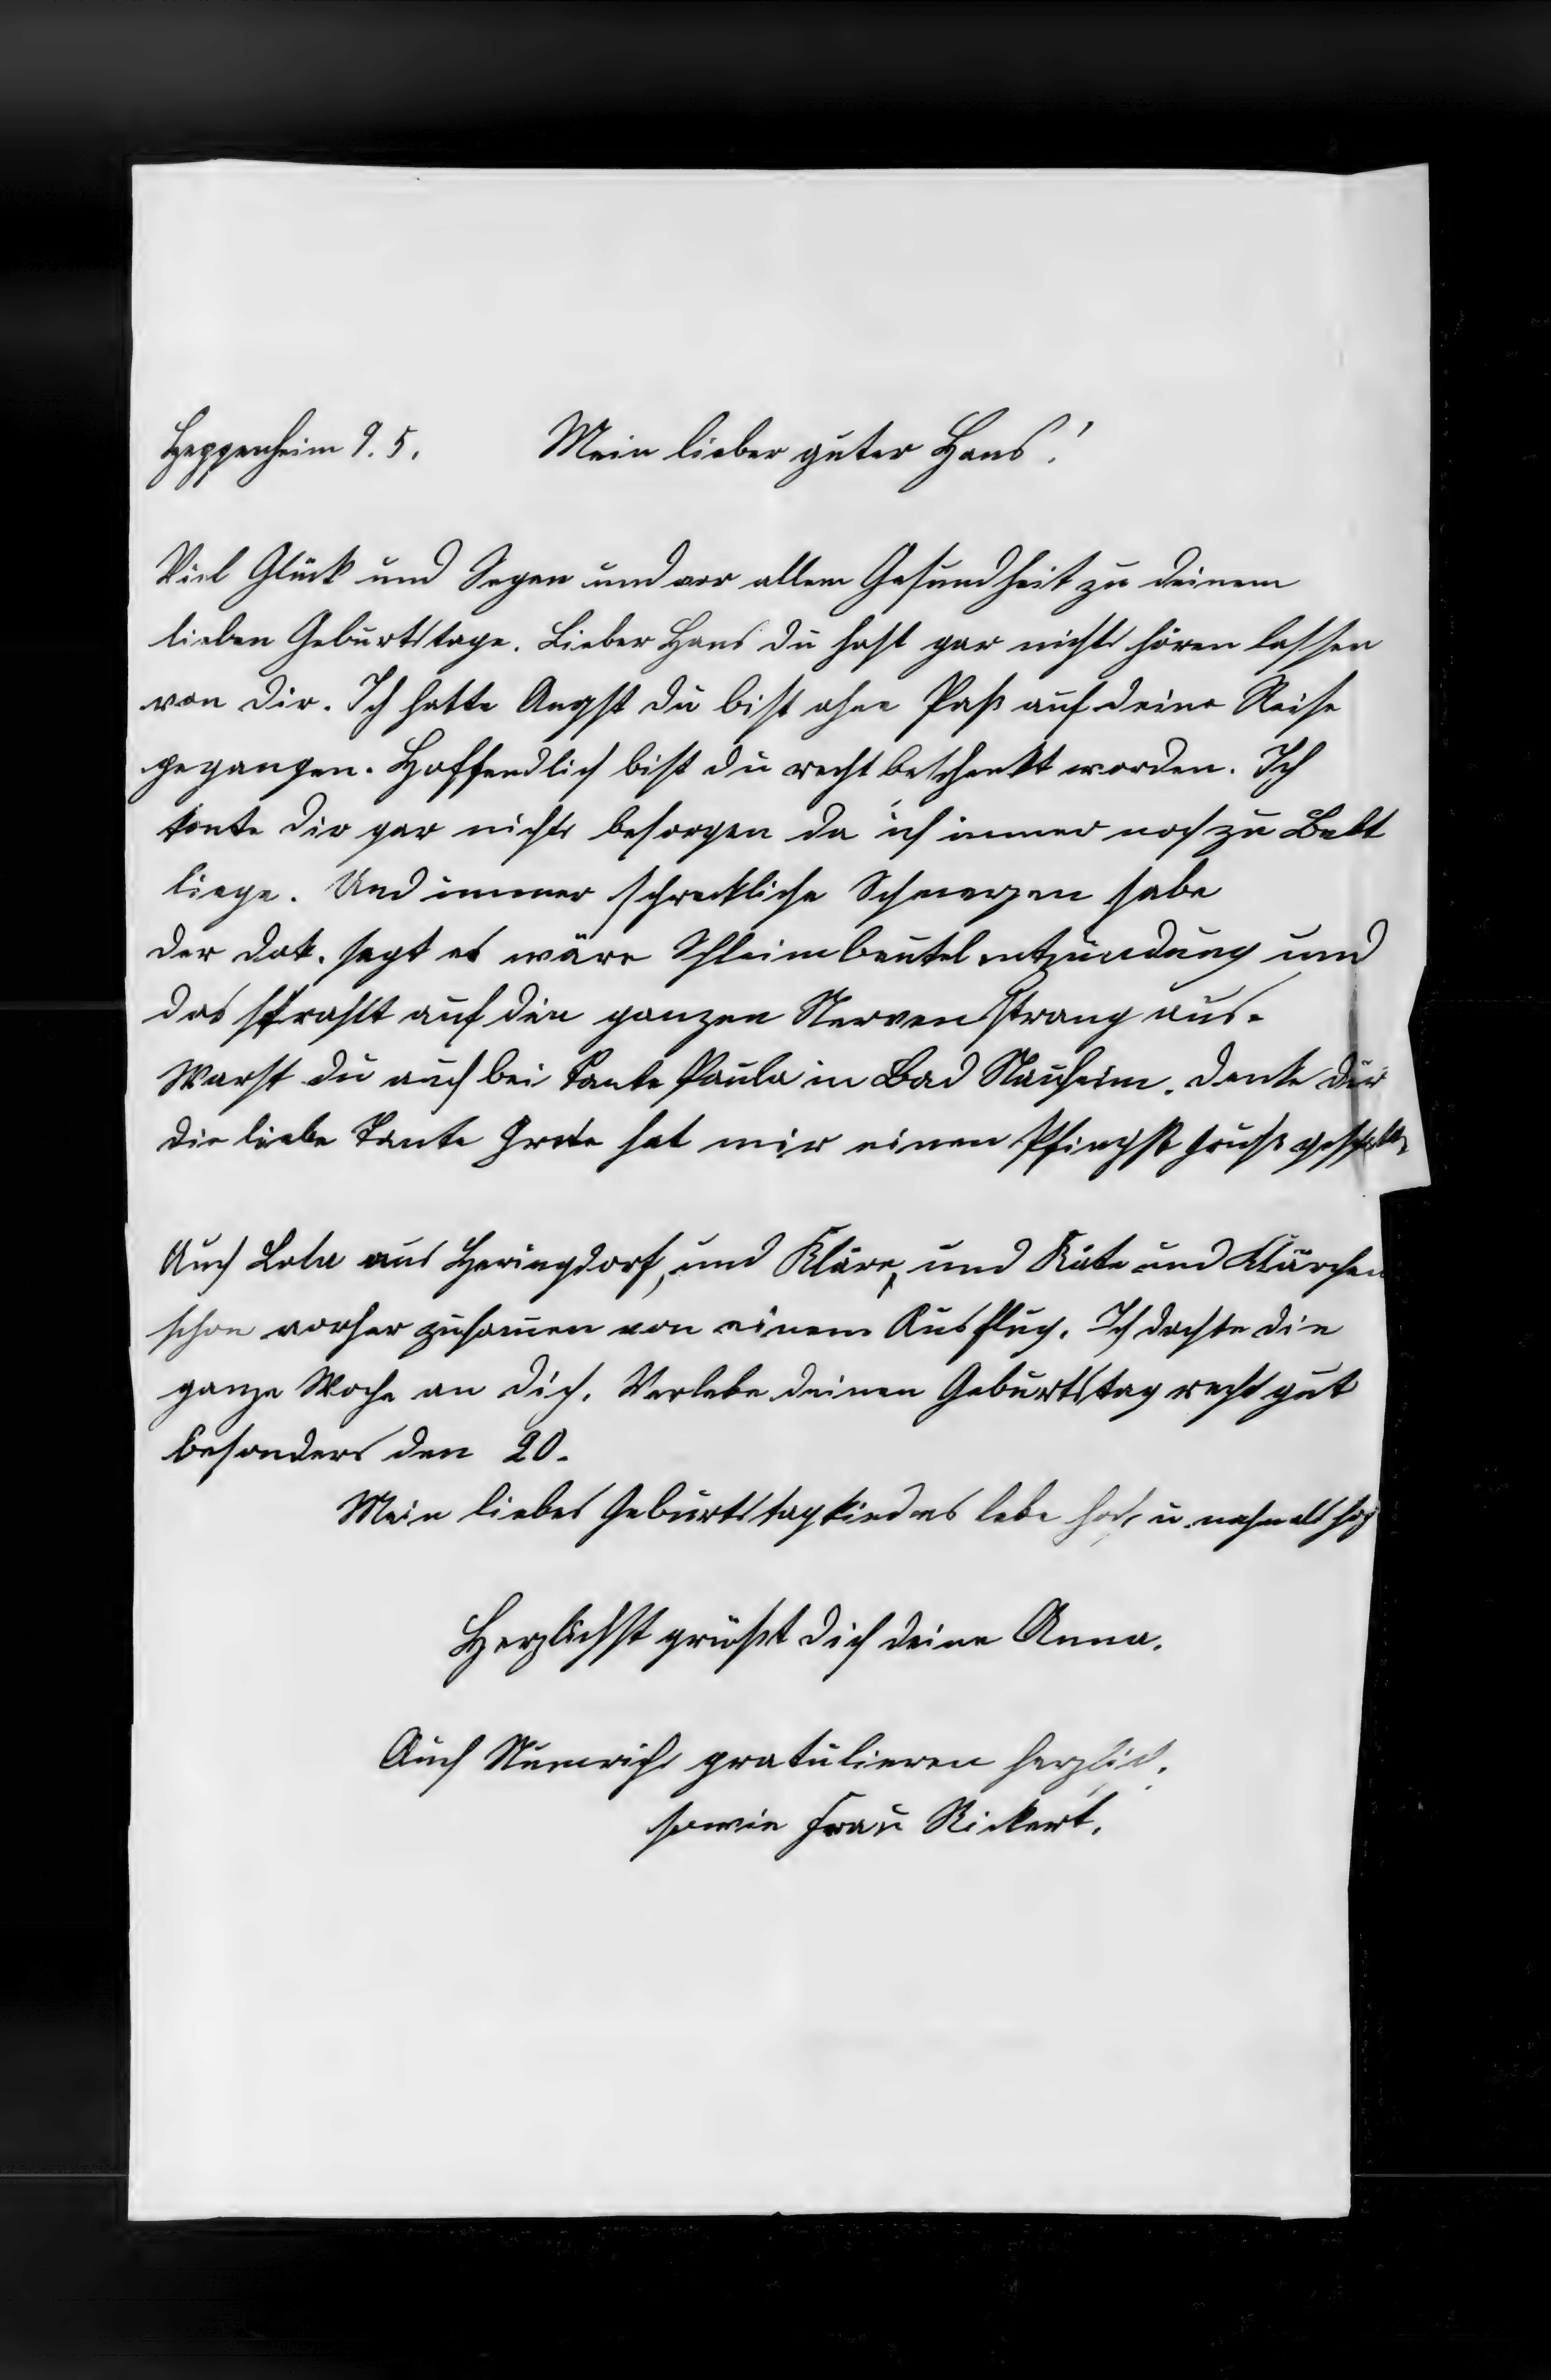 Heppenheim 9. 5. Mein lieber guter Hans!
Viel Glück und Segen und vor allem Gesundheit zu deinem
lieben Geburtstage. Lieber Hans du hast gar nichts hören lassen
von dir. Ich hatte Angst du bist ohne Paß auf deine Reise
gegangen. Hoffendlich bist du recht beschenkt worden. Ich
konte dir gar nichts besorgen da ich immer noch zu Bett
liege. Und immer schreckliche Schmerzen habe
der Dok. sagt es wäre Schleimbeutelentzündung und
das strahlt auf den ganzen Nervenstrang aus.
Warst du auch bei Tante Paula in Bad Nauheim. Denke dir
die liebe Tante Grete hat mir einen Pfingst Gruß
Auch Lola aus Heringsdorf, und Kläre, und Käte und Klärchen
schon vorher zusamen von einem Ausflug. Ich dachte die
ganze Woche an dich. Verlebe deinen Geburtstag recht gut
besonders den 20.
Mein liebes Geburtstagkind es lebe hoch u.
Herzlichst grüßt dich deine Anna.
Auch gratulieren herzlich.
sowie Frau Rickert.